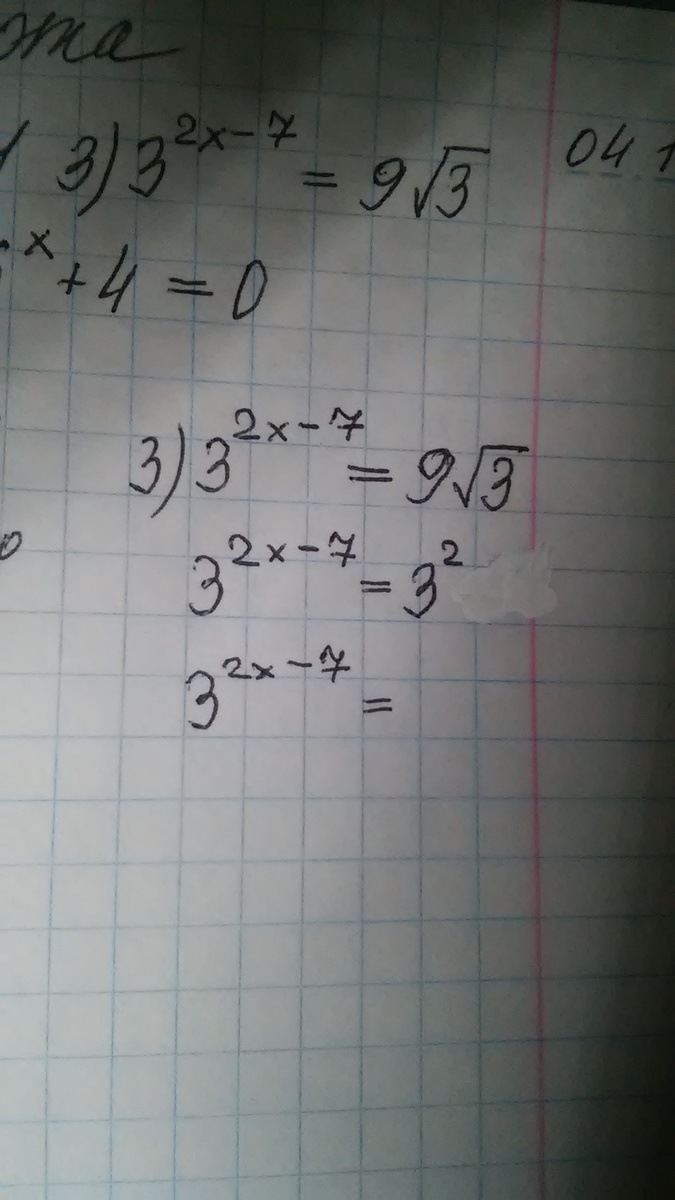 3) 3^{2x-7} = 9√3
04
x + 4 = 0
3) 3^{2x-7} = 9√3
3^{2x-7} = 3^2
3^{2x-7} =